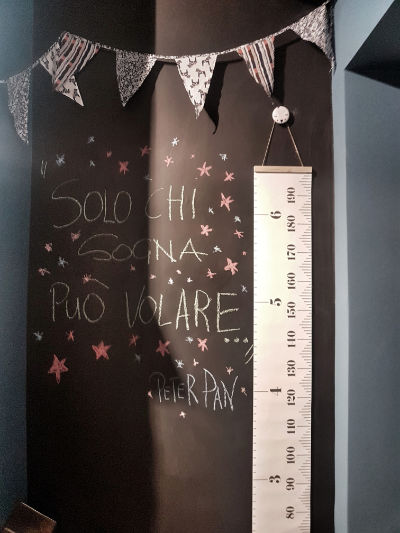 " SOLO CHI
SOGNA
PUÒ VOLARE
..."
PETER PAN
190
6
180
170
160
5
150
140
130
4
120
110
100
3
90
80